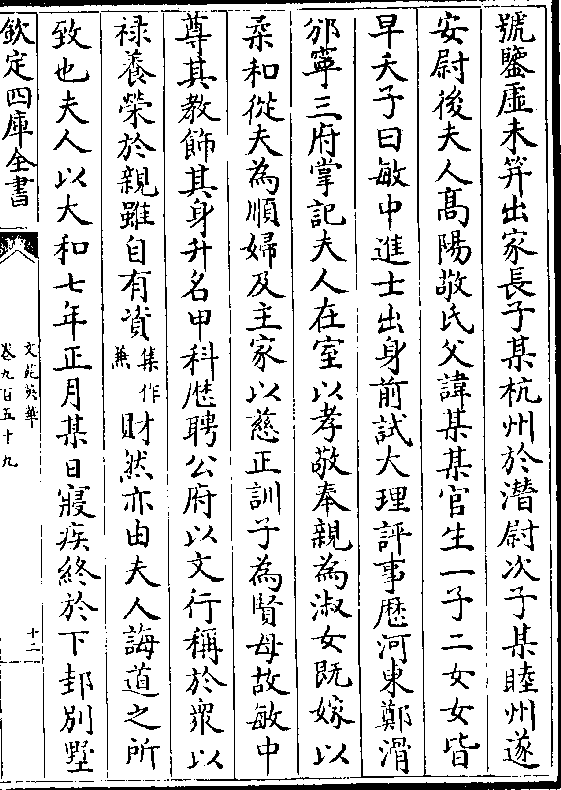 號鑒虛未笄出家長子某杭州於潛尉次子某睦州遂
安尉後夫人髙陽敬氏父諱某某官生一子二女女皆
早夭子曰敏中進士出身前試大理評事歴河東鄭滑
邠寧三府掌記夫人在室以孝敬奉親為淑女既嫁以
柔和從夫為順婦及主家以慈正訓子為賢母故敏中
尊其教飾其身升名甲科歴聘公府以文行稱於衆以
禄養榮於親雖自有資集作兼財然亦由夫人誨道之所
致也夫人以大和七年正月某日寢疾終於下邽別墅
欽定四庫全書
文苑英華
卷九百五十九
十二